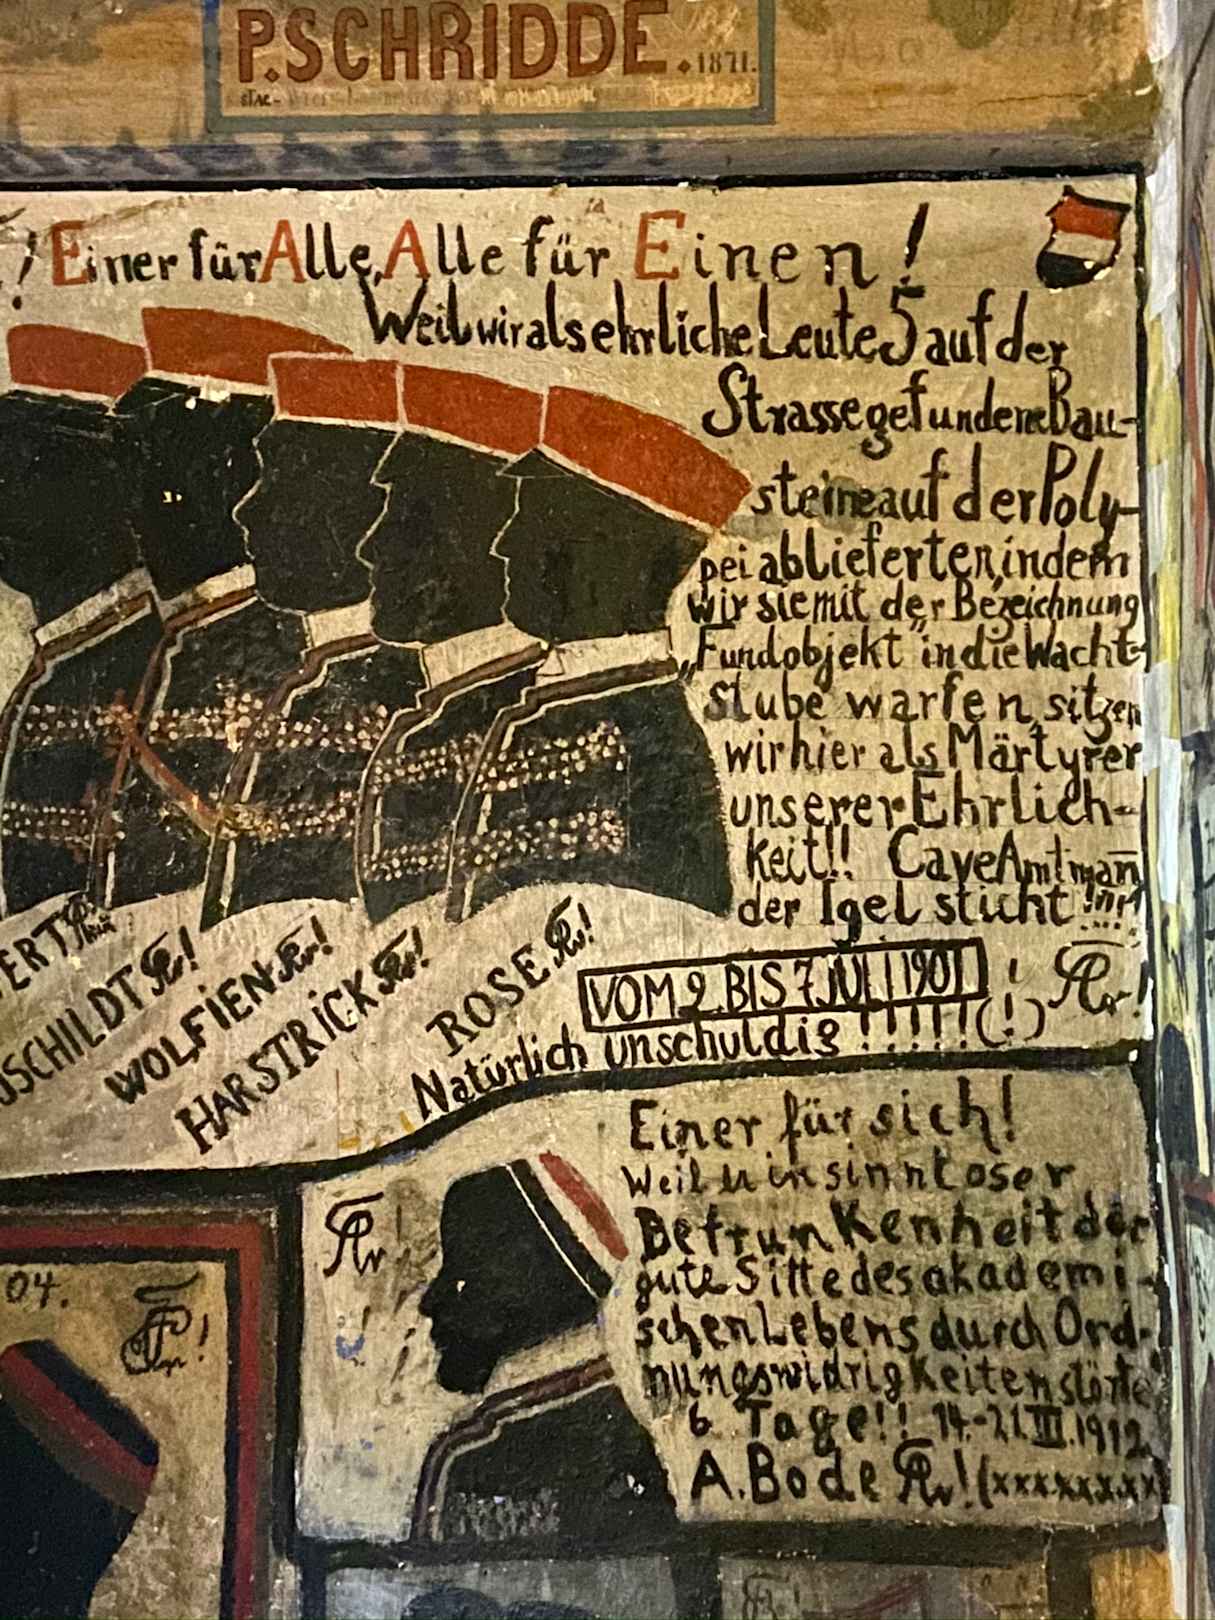 P. SCHRIDDE. 1871.
! Einer für Alle, Alle für Einen!
Weil wir als ehrliche Leute 5 auf der
Strasse gefundene Bau-
steine auf der Poly-
pei ablieferten, indem
wir sie mit der Bezeichnung
„Fundobjekt" in die Wacht-
stube warfen, sitzen
wir hier als Märtyrer
unserer Ehrlich-
keit!! Cave Amtman̄
der Igel sticht !!!!
SCHILDT
WOLFIEN
HARSTRICK
ROSE
VOM 2. BIS 7. JULI 1901
Natürlich unschuldig !!!!!(!)
Einer für sich!
Weil er in sinnloser
Betrunkenheit der
gute Sitte des akademi-
schen Lebens durch Ord-
nungswidrigkeiten störte
6 Tage!! 14.-21. III. 1912.
A. Bode ! (xxx.xx.x.xx)
04.